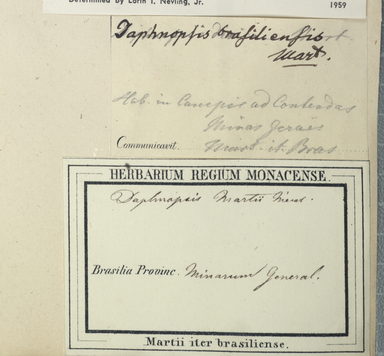 Determined by Lorin I. Nevling, Jr. 1959
Daphnopsis brasiliensis
Mart.
Hab. in Campis ad Contendas
Minas Geraës
Communicavit Mart. it. Bras
HERBARIUM REGIUM MONACENSE.
Daphnopsis Martii Meisn.
Brasilia Provinc. Minarum General.
Martii iter brasiliense.